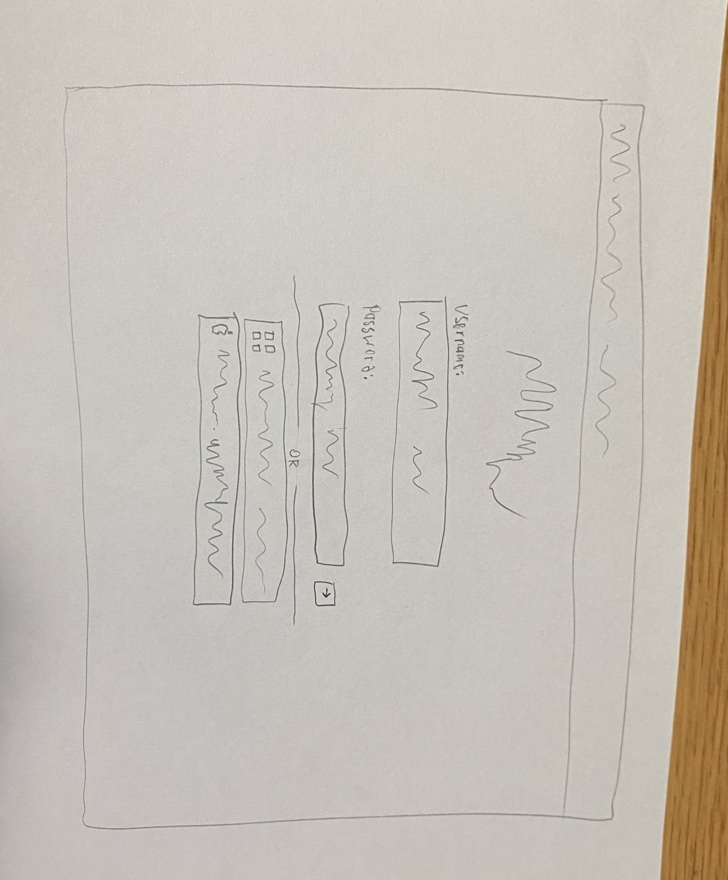 Username:
Password:
OR